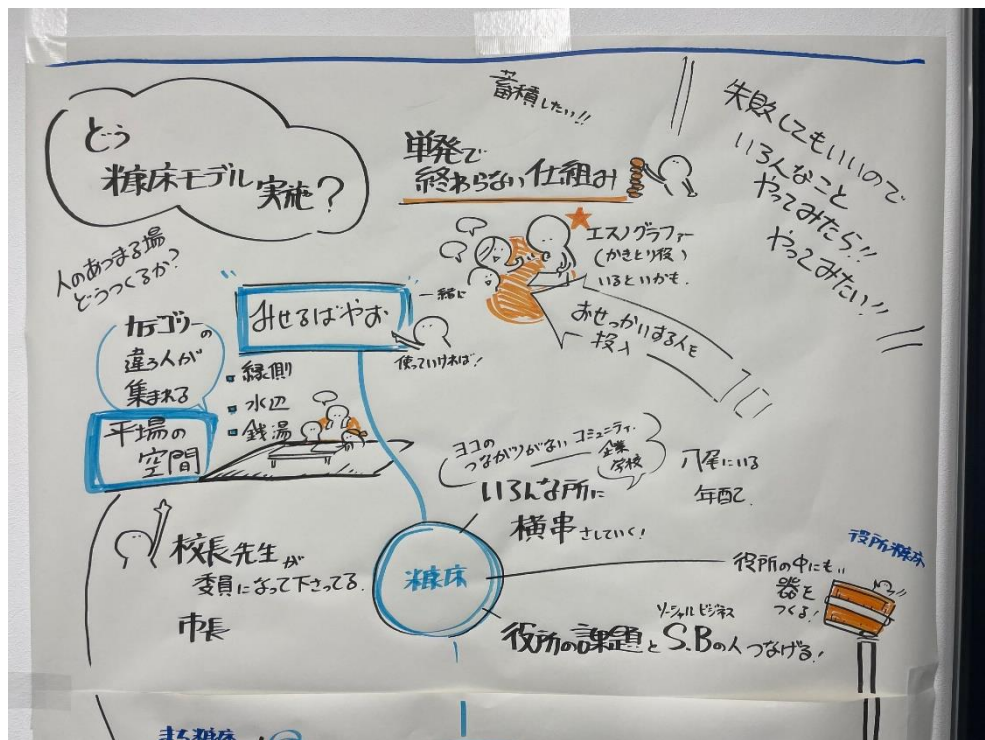 どう
糠床モデル
実施?
蓄積したい!!
単発で
終わらない仕組み
失敗してもいいので
いろんなこと
やってみたら!!
やってみたい!!
エスノグラファー
(かきとり役)
いるといいかも.
おせっかいする人を
投入
人のあつまる場
どうつくるか?
みせるばやお
一緒に
使っていければ!
カテゴリーの
違う人が
集まれる
平場の
空間
・縁側
・水辺
・銭湯
ヨコの
つながりがない コミュニティ.
企業
学校
いろんな所に
横串さしていく!
八尾にいる
年配.
校長先生が
委員になって下さってる.
市長
糠床
役所の中にも
器を
つくる!
役所糠床
ソーシャルビジネス
役所の課題とS.Bの人つなげる!
まち糠床